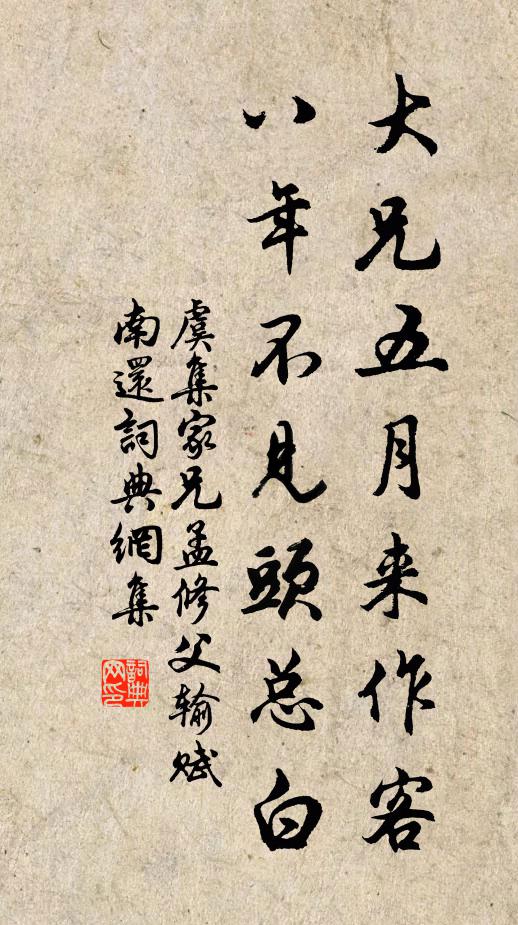 大兄五月来作客
八年不見頭总白
虞集家兄孟修父输赋
南還詞典網集
詞典网印